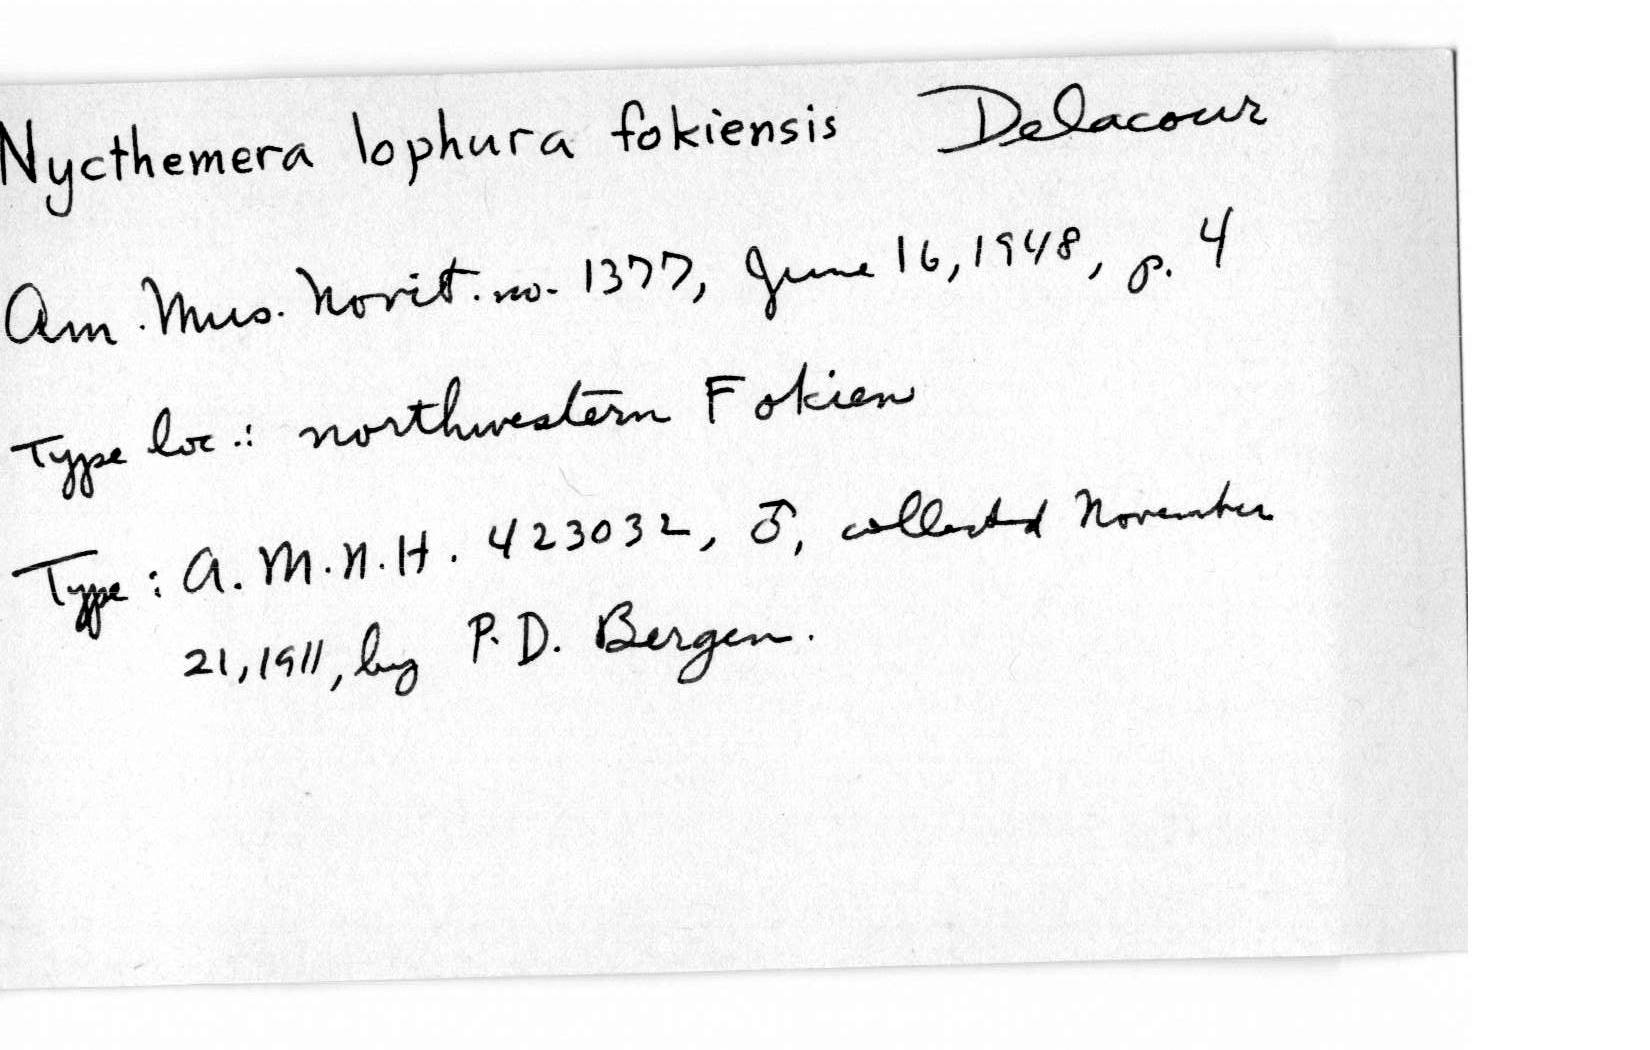 Nycthemera lophura fokiensis Delacour
Am. Mus. Novit. no. 1377, June 16, 1948, p. 4
Type loc.: northwestern Fokien
Type: A.M.N.H. 423032, ♂, collected November
21, 1911, by P.D. Bergen.